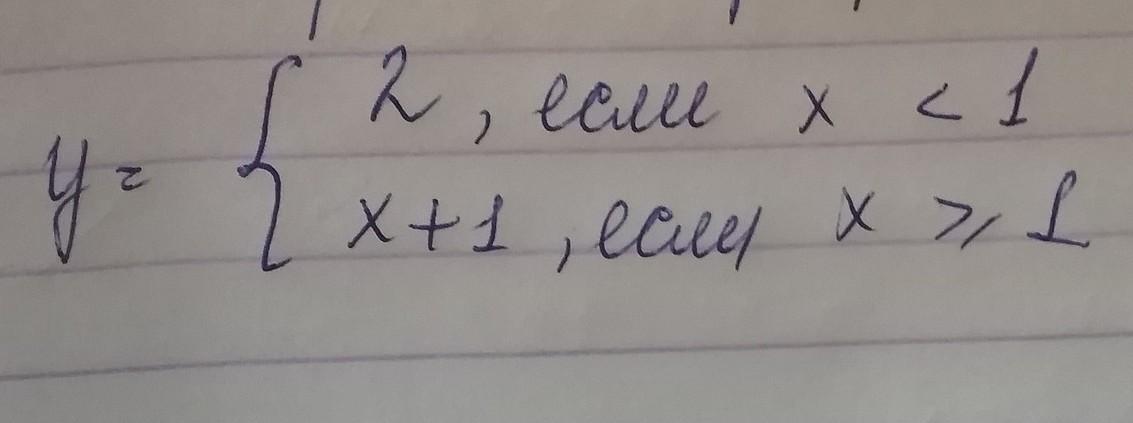 2, если x < 1
y =
x+1, если x ⩾ 1